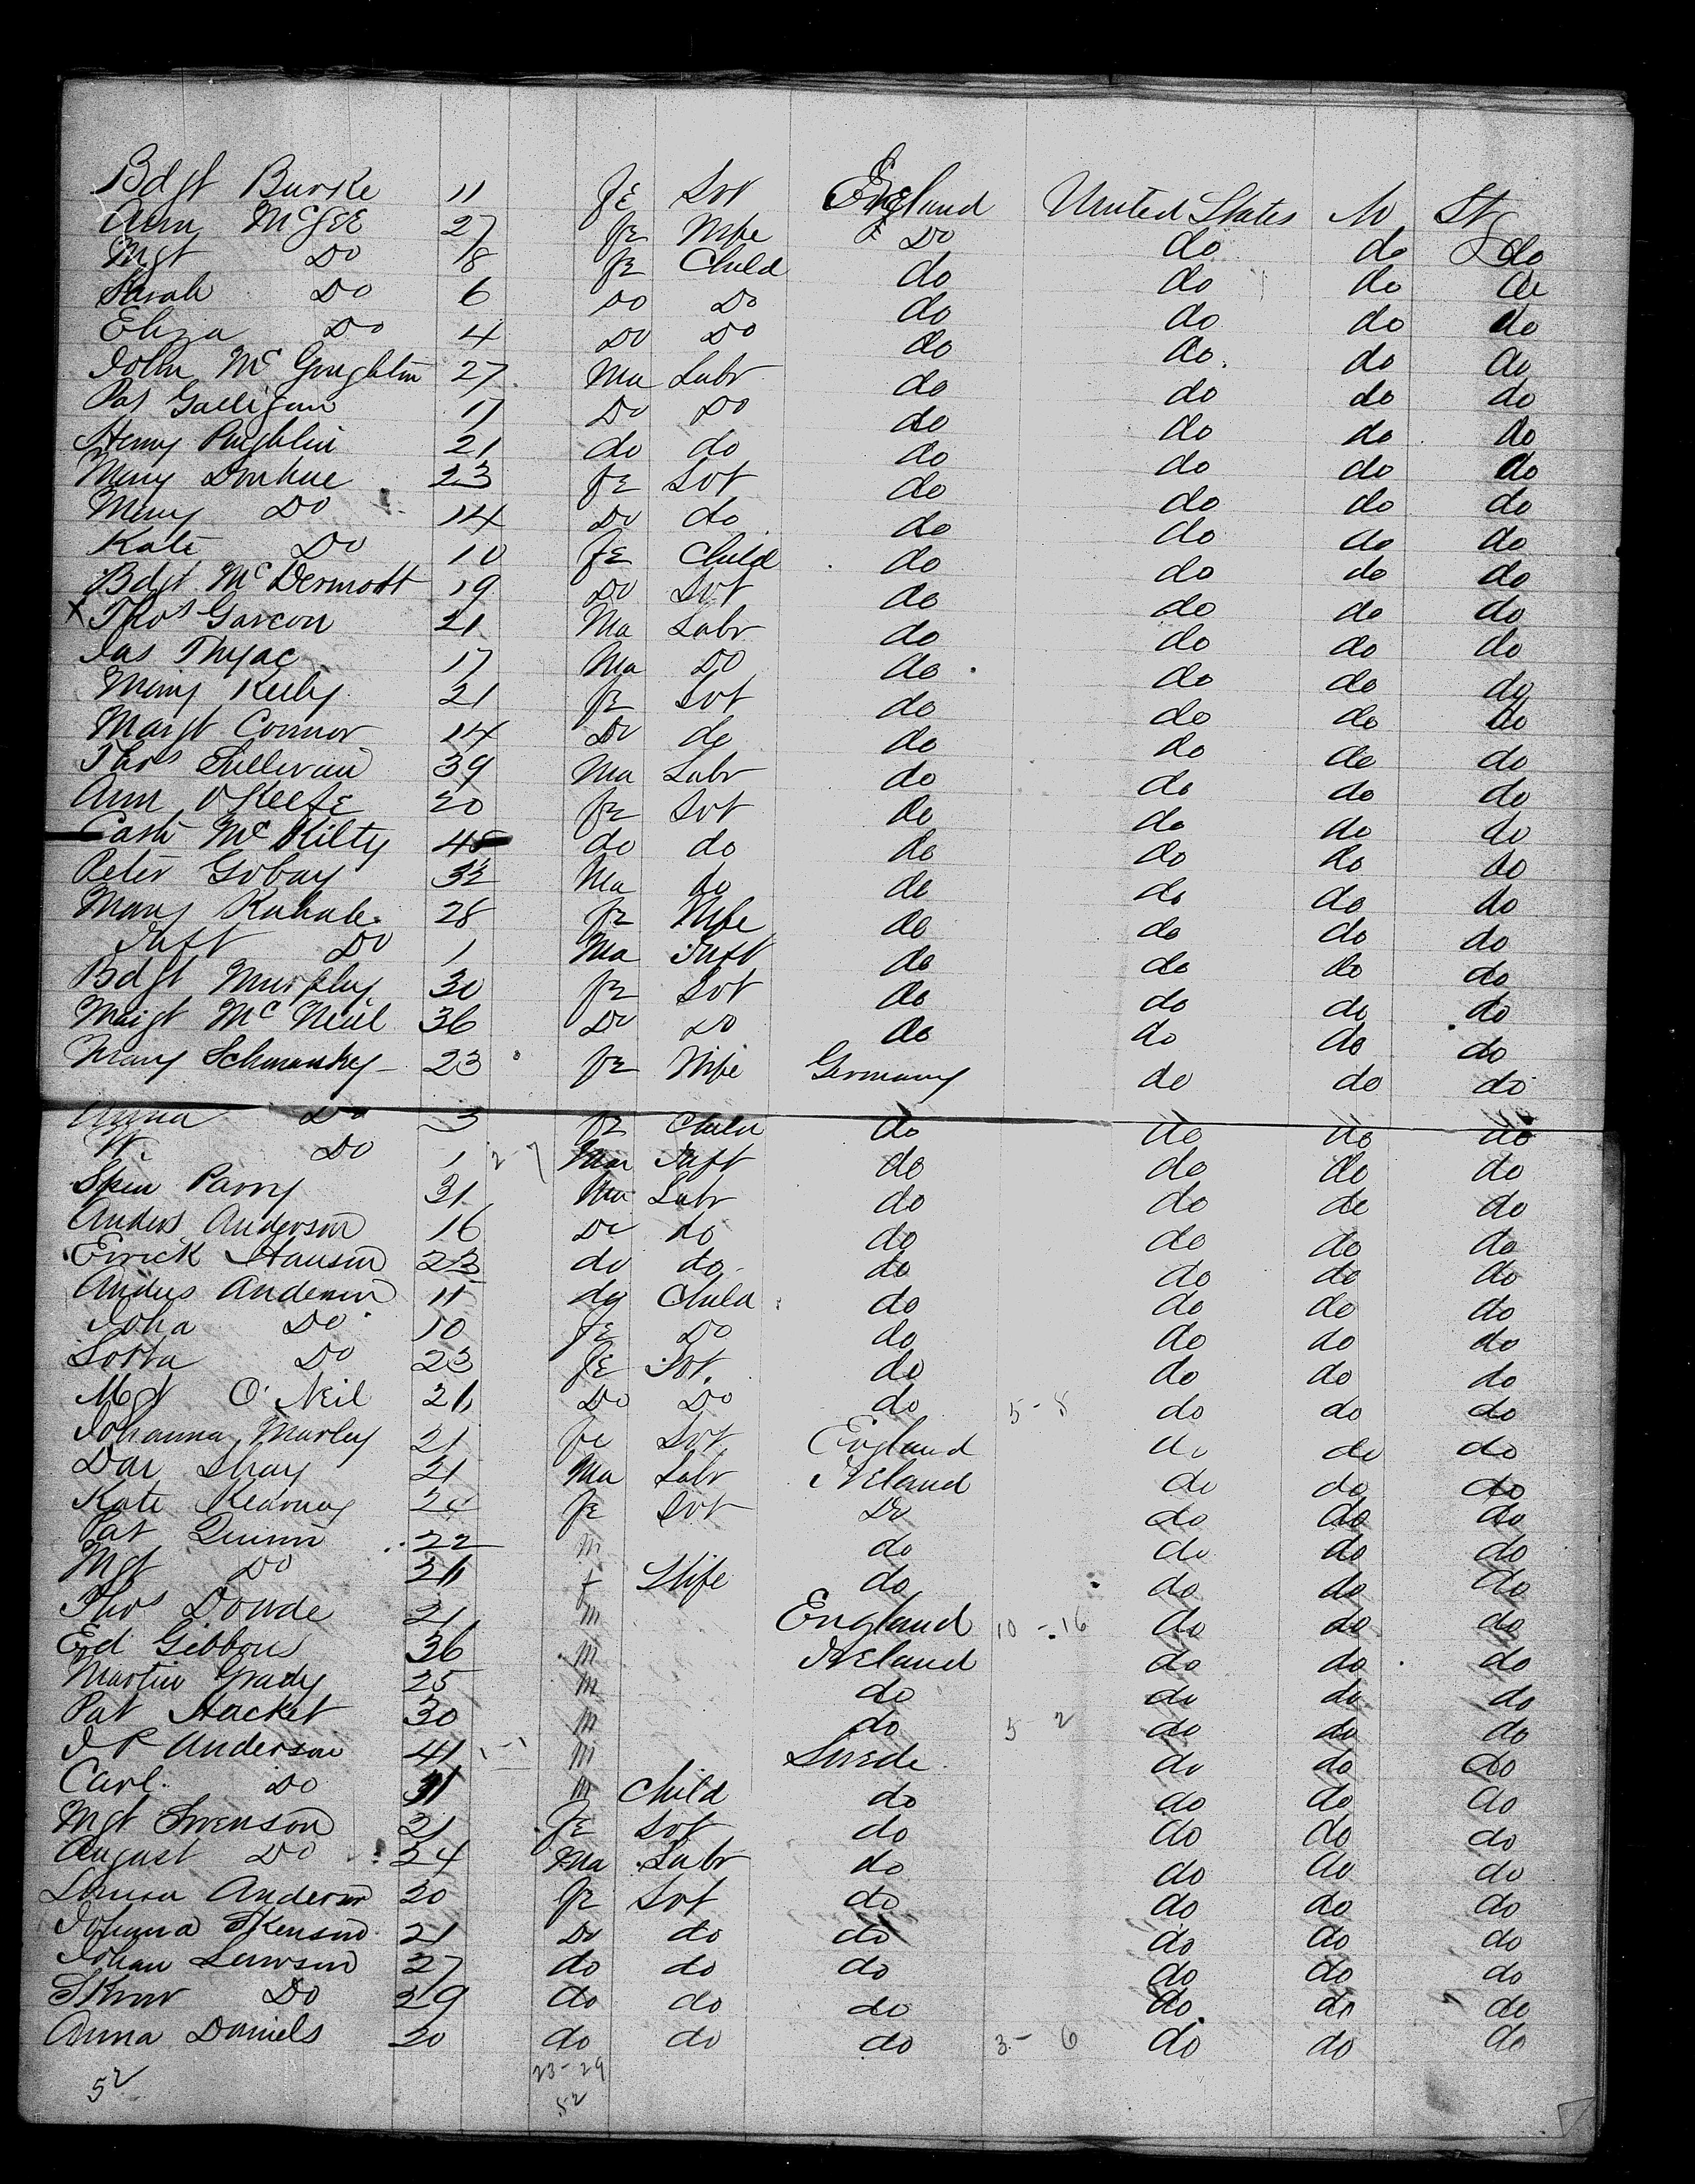 Bdgt Burke 11 fe Svt England United States No St
Ann McGEE 27 fe Wife Do do do do
Mgt Do 8 fe Child do do do do
Sarah Do 6 Do Do do do do do
Eliza Do 4 Do Do do do do do
John Mc Goughlin 27 Ma Labr do do do do
Pat Galligan 17 Do Do do do do do
Henry 21 do do do do do do
Mary Donhue 23 fe Svt do do do do
Mary Do 14 Do do do do do do
Kate Do 10 fe Child do do do do
Bdgt Mc Dermott 19 Do Svt do do do do
X Thos Garcon 21 Ma Labr do do do do
Jas 17 Ma Do do do do do
Mary Kelly 21 fe Svt do do do do
Margt Connor 14 Do do do do do do
Thos Sullivan 39 Ma Labr do do do do
Ann O'KeefE 20 fe Svt do do do do
Cath Mc Kilty do do do do do do
Peter 32 Ma do do do do do
Mary 28 fe Wife do do do do
Inft Do 1 Ma Inft do do do do
Bdgt Murphy 30 fe Svt do do do do
Margt Mc Neil 36 Do Do do do do do
Mary Schmanskey 23 fe Wife Germany do do do
Anna Do 3 fe Child do do do do
W. Do 1 2-7 Ma Inft do do do do
Parry 31 Ma Labr do do do do
Anders Anderson 16 Do do do do do do
Errick Hanson 23 do do do do do do
Anders Anderson 11 do Child do do do do
Joha Do 10 fe Do do do do do
Do 23 fe Svt do do do do
Mgt O'Neil 21 Do Do do 5-8 do do do
Johanna Marley 21 fe Svt England do do do
Dan Shay 21 Ma Labr Ireland do do do
Kate Kearney fe Svt Do do do do
Pat Quinn 22 m do do do do
Mgt Do 21 f Wife do do do do
Thos Doude 21 m England 10-16 do do do
Ed Gibbons 36 m Ireland do do do
Martin Grady 25 m do do do do
Pat Hacket 30 m do 5 2 do do do
J P Anderson 41 1-1 m Swede do do do
Carl Do 11 m Child do do do do
Mgt Swenson 21 fe Svt do do do do
August Do 24 Ma Labr do do do do
Louisa Anderson 20 fe Svt do do do do
Johanna Skenson 21 Do do do do do do
Johan 27 do do do do do do
Do 29 do do do do do do
Anna Daniels 20 do do do 3-6 do do do
52 23-29
52